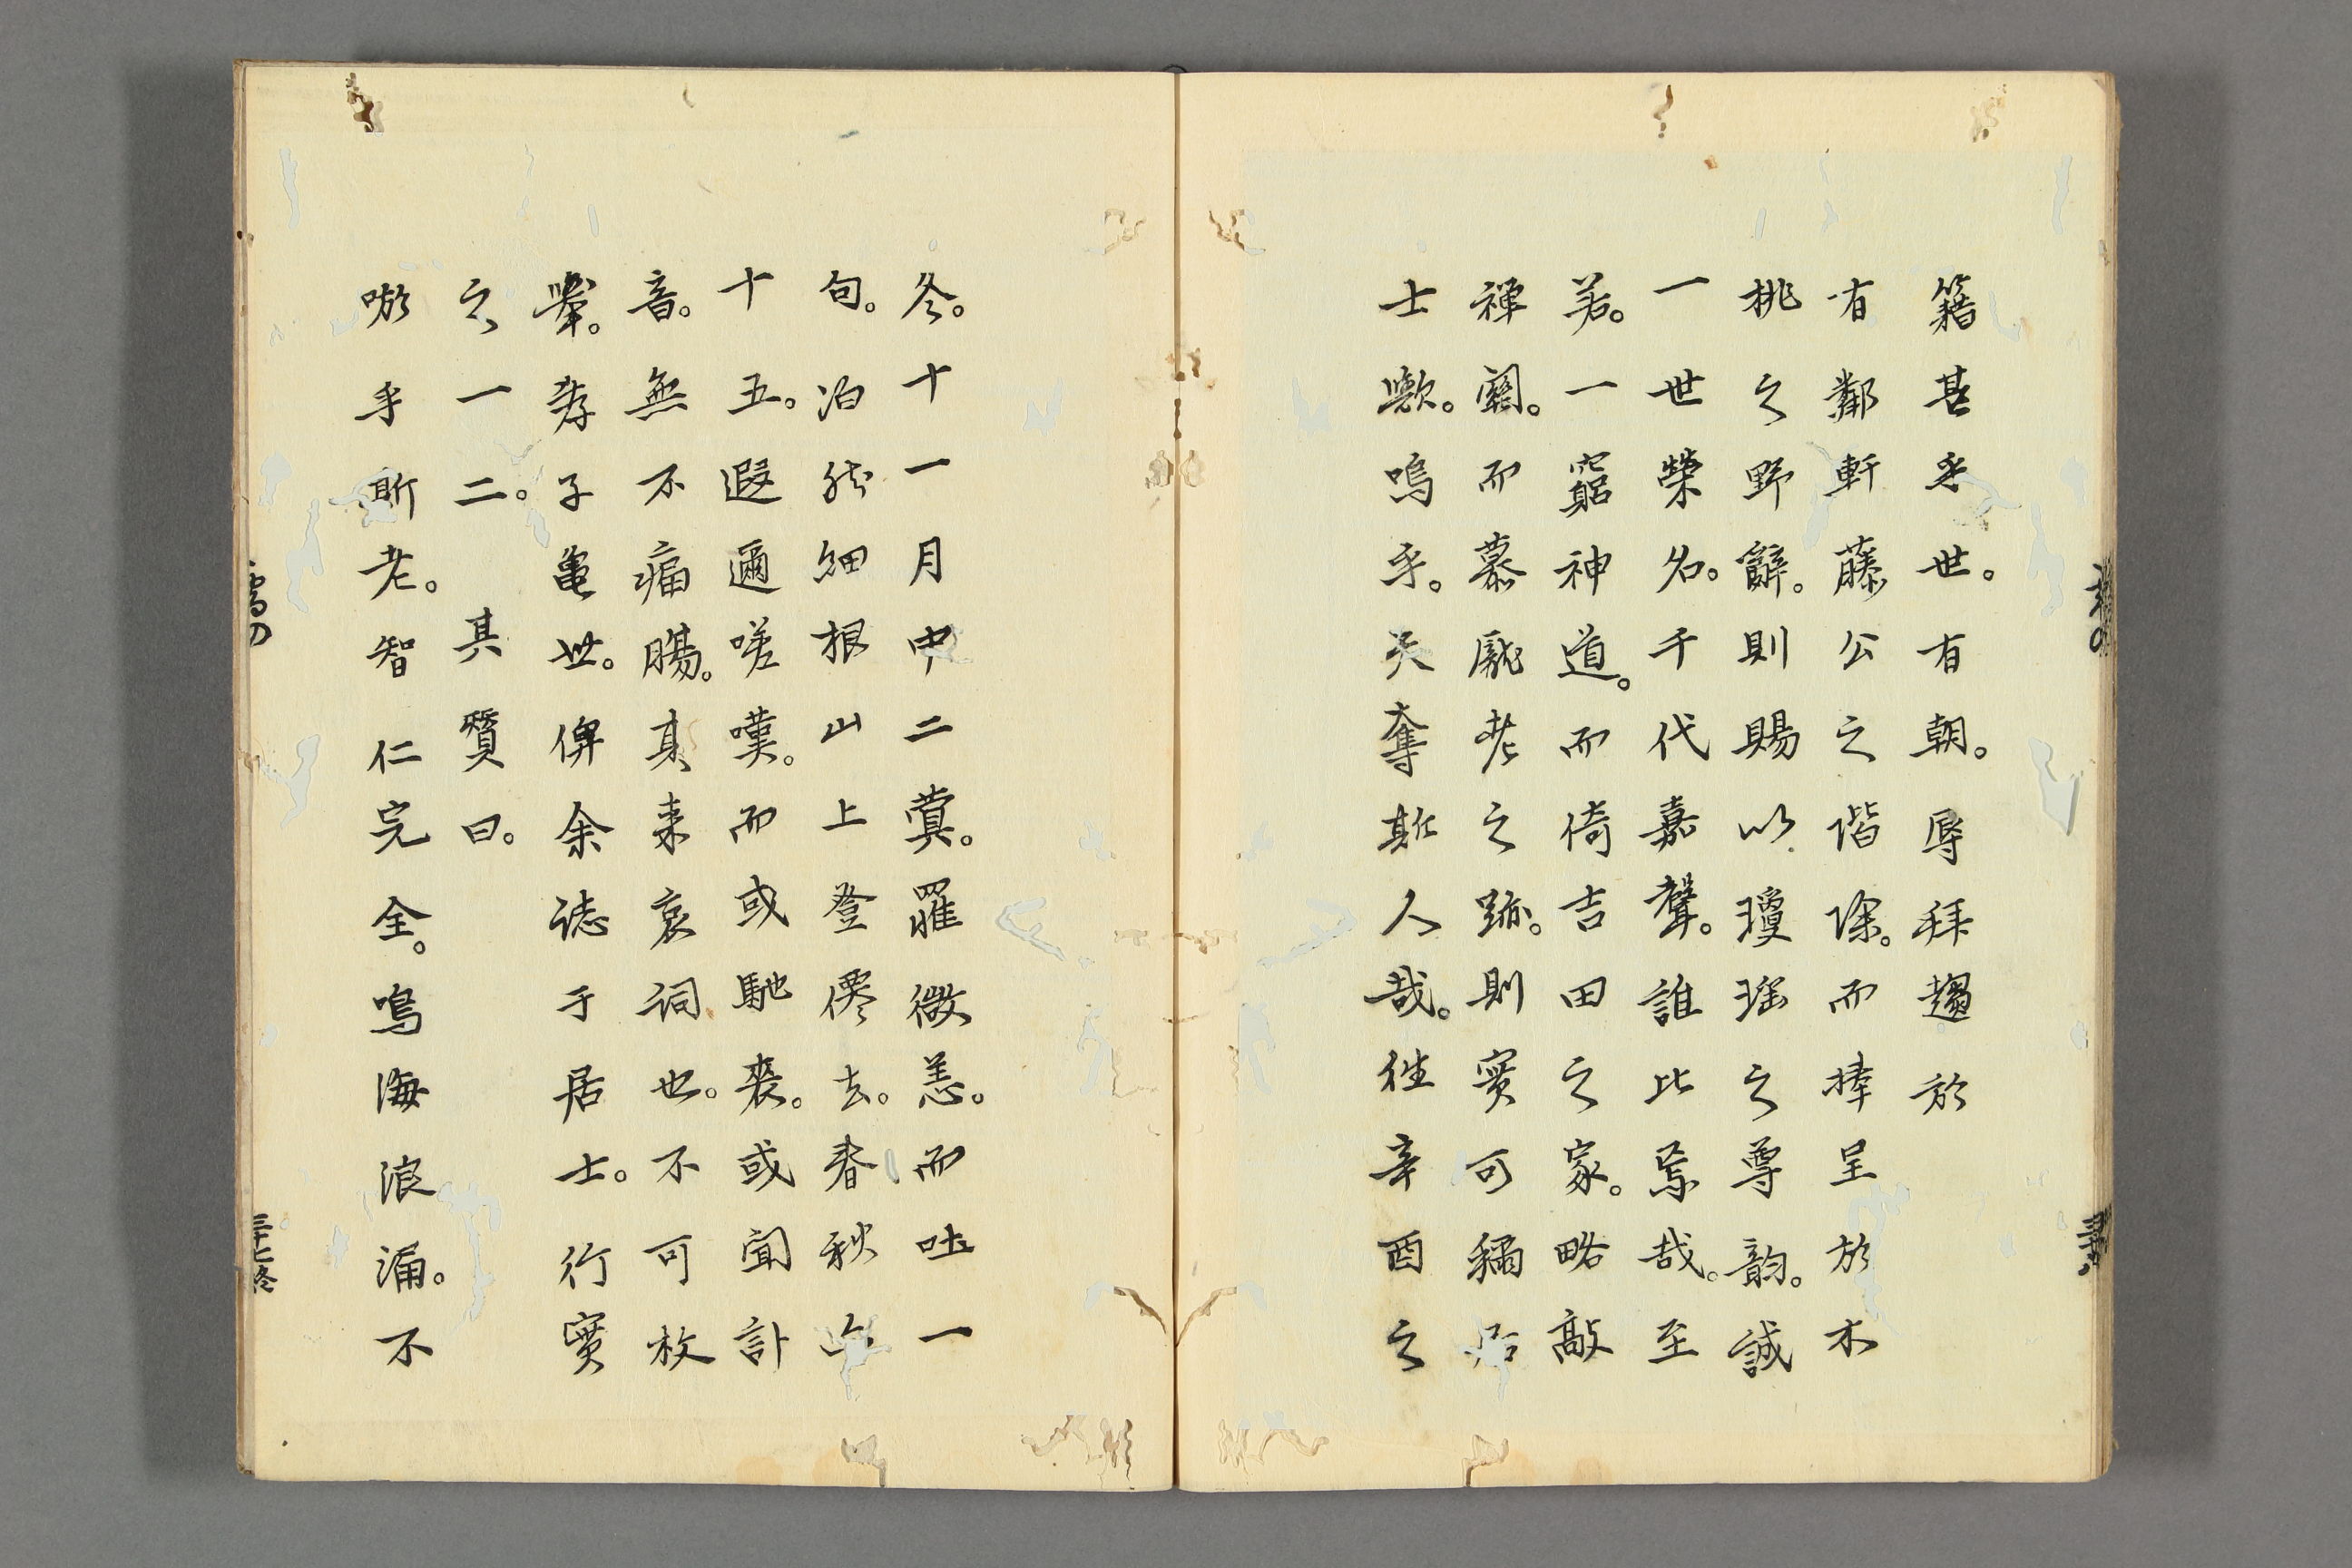 籍甚乎世。有朝。辱拜趨於
有鄰軒藤公之階除。而捧呈於木
桃之野辭。則賜以瓊瑶之尊韵。誠
一世榮名。千代嘉聲。誰比焉哉。至
若。一窺神道。而倚吉田之家。略敲
禅關。而慕龐老之跡。則寔可稱居
士歟。嗚乎。天奪斯人哉。徃辛酉之
冬。十一月中二蓂。羅微恙。而吐一
句。泊然細根山上登僊去。春秋六
十五。遐邇嗟嘆。而或馳裘。或聞訃
音。無不痛腸。其来哀詞也。不可枚
舉。孝子亀世。俾余誌于居士。行寔
之一二。其贊曰。
嗞乎斯老。智仁完全。鳴海浪涌。不
三十七終